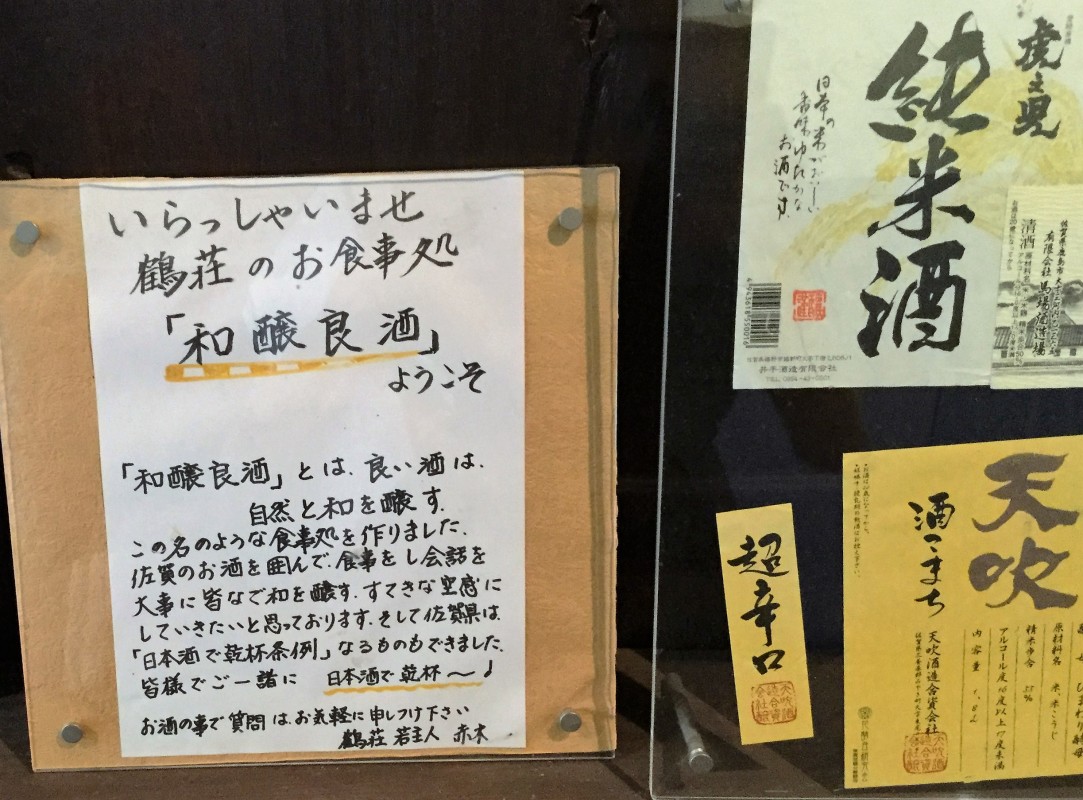 いらっしゃいませ
鶴荘のお食事処
「和醸良酒」
ようこそ
「和醸良酒」とは、良い酒は、
自然と和を醸す。
この名のような食事処を作りました。
佐賀のお酒を囲んで、食事をし会話を
大事に皆なで和を醸す。すてきな空感に
していきたいと思っております。そして佐賀県は、
「日本酒で乾杯条例」なるものもできました。
皆様でご一諸に 日本酒で乾杯〜♩
お酒の事で質問は、お気軽に申しつけ下さい
鶴荘 若主人 赤木
虎之児
純米酒
日本の米でおいしい
香味ゆたかな
お酒です。
4943618550016
井手酒造有限会社
佐賀県鹿島市
有限会社 馬場酒造場
清酒
天吹
酒こまち
超辛口
天吹酒造合資会社
原材料名 米、米こうじ
精米歩合 55%
内容量